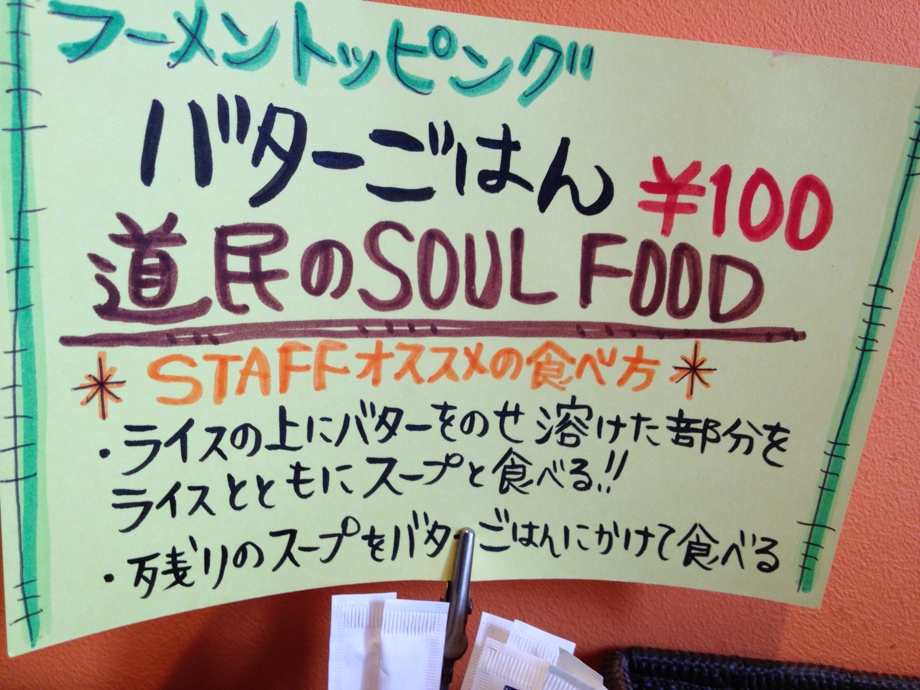 フーメントッピング
バターごはん ¥100
道民のSOUL FOOD
＊STAFFオススメの食べ方＊
・ライスの上にバターをのせ溶けた部分を
ライスとともにスープと食べる!!
・残りのスープをバターごはんにかけて食べる